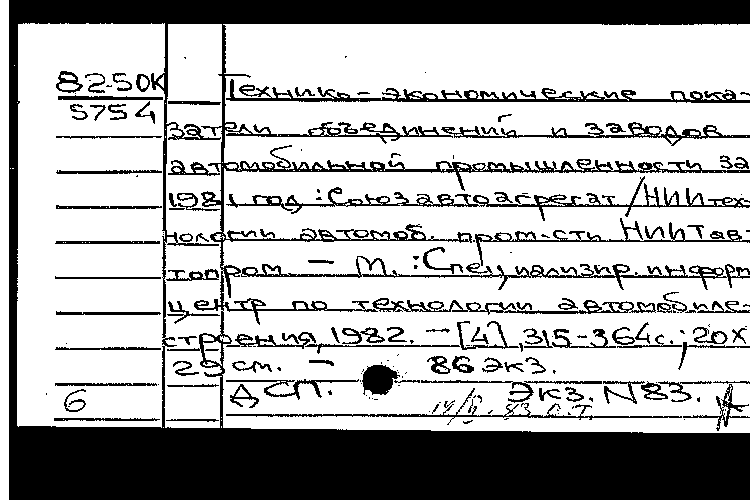 82-50К Технико-экономические пока-
5754
затели объединений и заводов
автомобильной промышленности за
1981 год : Союзавтоагрегат / НИИтех-
нологии автомоб. пром-сти НИИТавт
топром. — М. : Специализир. информ
центр по технологии автомобиле-
строения, 1982. — [4], 315-364с. ; 20х
29 см. — 86 экз.
ДСП. Экз. N83.
6